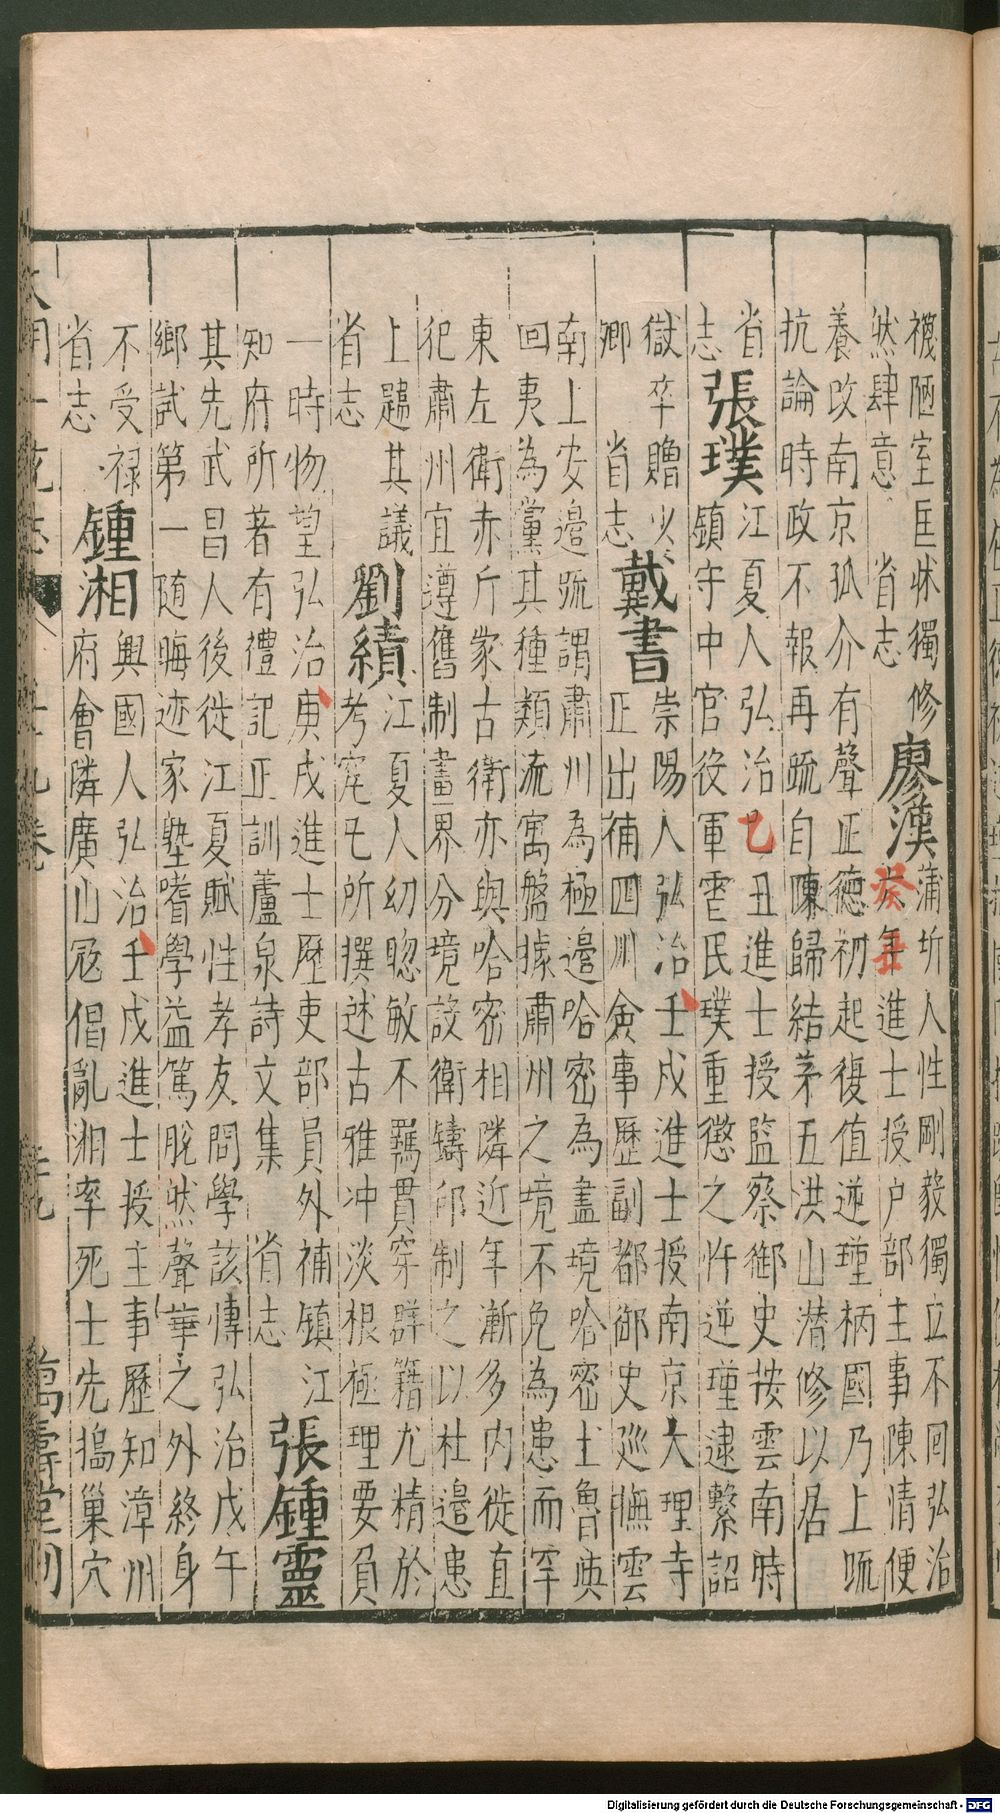 襪陋室匡牀獨修
然肆意 省志
廖漢
蒲圻人性剛毅獨立不回弘治
癸丑年進士授户部主事陳情便
養改南京孤介有聲正德初起復值逆瑾柄國乃上疏
抗論時政不報再疏自陳歸結茅五洪山潛修以居
省
志
張璞
江夏人弘治乙丑進士授監察御史按雲南時
鎮守中官役軍雹民璞重懲之忤逆瑾逮繫詔
獄卒贈少
卿 省志
戴書
崇陽人弘治壬戍進士授南京大理寺
正出補四川僉事歷副都御史巡憮雲
南上安邊疏謂肅州為極邊哈密為盡境哈密土魯
回夷為黨其種類流寓盤據肅州之境不免為患而罕
東左衛赤斤家古衛亦與哈密相隣近年漸多内徙直
犯肅州宜遵舊制畫界分境設衛鑄印制之以杜邊患
上韙其議
省志
劉績
江夏人幼聦敏不羈貫穿群籍尤精於
考究凡所撰述古雅冲淡根極理要負
一時物望弘治庚戍進士歷吏部員外補鎮江
知府所著有禮記正訓蘆泉詩文集 省志
張鍾靈
其先武昌人後徙江夏賦性孝友問學該博弘治戊午
鄉試第一随晦迹家塾嗜學益篤脫然聲華之外終身
不受禄
省志
鍾湘
興國人弘治壬戍進士授主事歷知漳州
府會隣廣山冦倡亂湘率死士先搗巢穴
萬壽堂刊
Digitalisierung gefördert durch die Deutsche Forschungsgemeinschaft - DFG